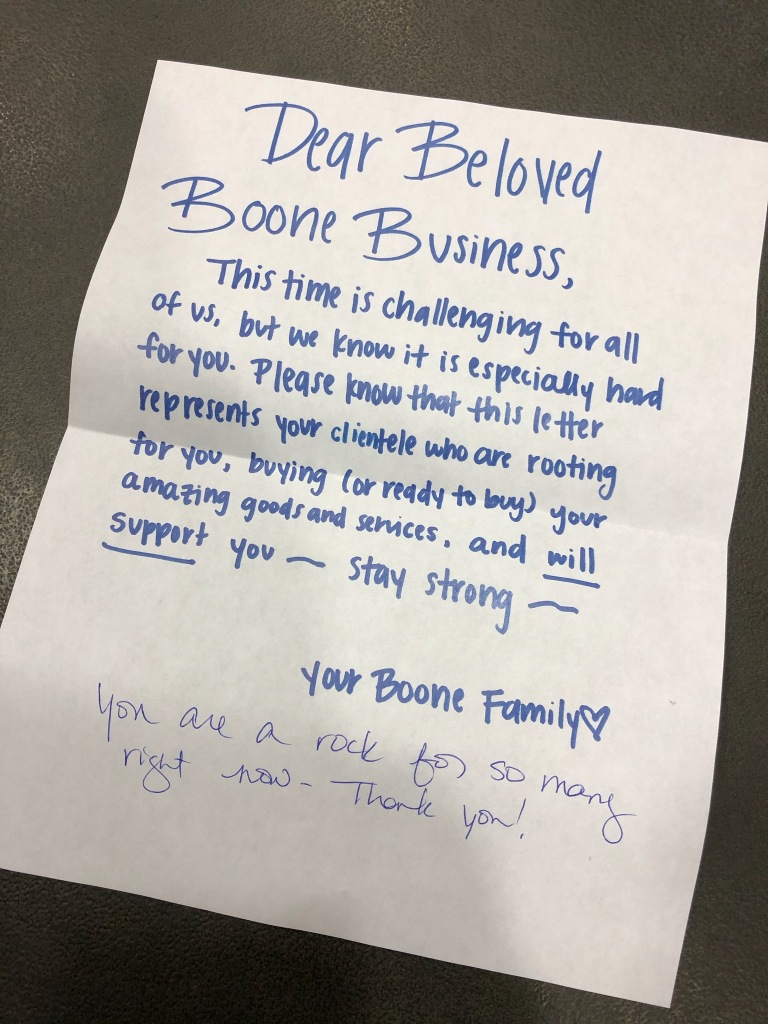 Dear Beloved
Boone Business,
This time is challenging for all
of us, but we know it is especially hard
for you. Please know that this letter
represents your clientele who are rooting
for you, buying (or ready to buy) your
amazing goods and services, and will
support you ~ stay strong ~
Your Boone Family♡
You are a rock for so many
right now - Thank you!